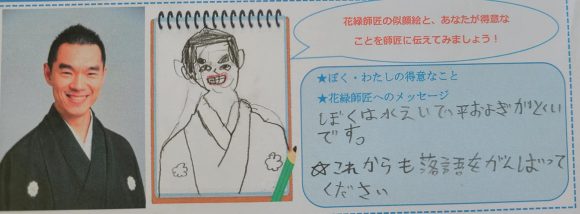 花緑師匠の似顔絵と、あなたが得意な
ことを師匠に伝えてみましょう！
★ぼく・わたしの得意なこと
★花緑師匠へのメッセージ
ぼくは水えいで、平およぎがとくい
です。
☆これからも落語をがんばって
ください